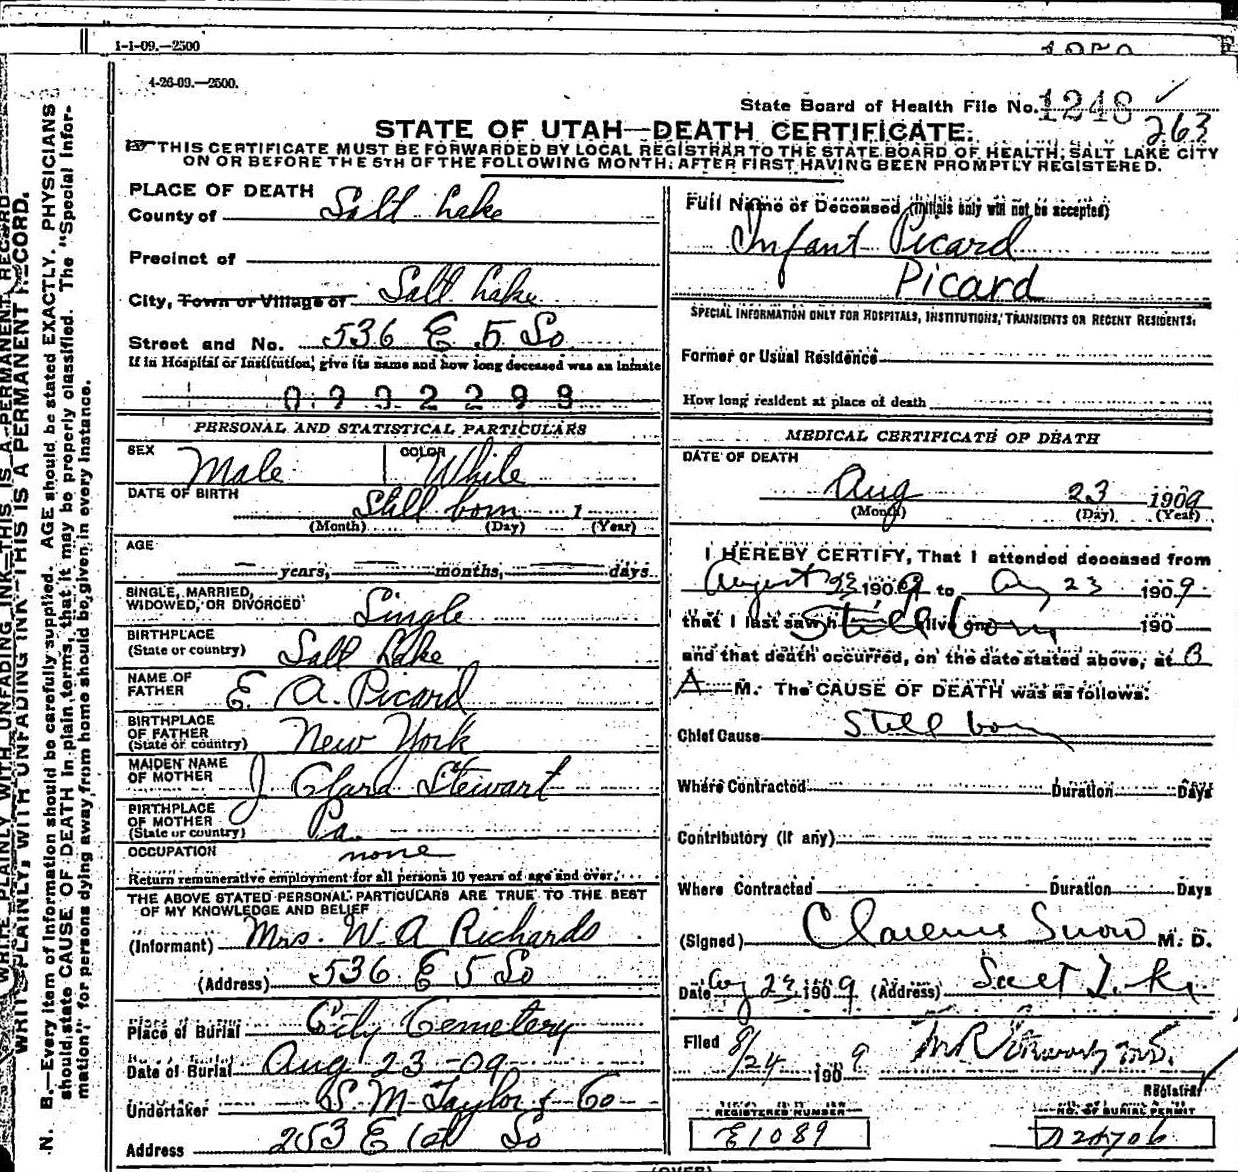 1-1-09.—2500
4-26-09.—2500.
State Board of Health File No. 1248
263
STATE OF UTAH—DEATH CERTIFICATE.
THIS CERTIFICATE MUST BE FORWARDED BY LOCAL REGISTRAR TO THE STATE BOARD OF HEALTH, SALT LAKE CITY
ON OR BEFORE THE 5TH OF THE FOLLOWING MONTH, AFTER FIRST HAVING BEEN PROMPTLY REGISTERED.
PLACE OF DEATH
County of Salt Lake
Precinct of
City, Town or Village of Salt Lake
Street and No. 536 E 5 So
If in Hospital or Institution, give its name and how long deceased was an inmate
PERSONAL AND STATISTICAL PARTICULARS
SEX Male COLOR White
DATE OF BIRTH Still born 1
(Month) (Day) (Year)
AGE
years, months, days
SINGLE, MARRIED,
WIDOWED, OR DIVORCED Single
BIRTHPLACE
(State or country) Salt Lake
NAME OF
FATHER E. A. Picard
BIRTHPLACE
OF FATHER
(State or country) New York
MAIDEN NAME
OF MOTHER J Clara Stewart
BIRTHPLACE
OF MOTHER
(State or country) Pa.
OCCUPATION none
Return remunerative employment for all persons 10 years of age and over.
THE ABOVE STATED PERSONAL PARTICULARS ARE TRUE TO THE BEST
OF MY KNOWLEDGE AND BELIEF
(Informant) Mrs. W. A Richards
(Address) 536 E 5 So
Place of Burial City Cemetery
Date of Burial Aug 23-09
Undertaker S. M. Taylor & Co
Address 253 E 1st So
Full Name of Deceased (Initials only will not be accepted)
Infant Picard
Picard
SPECIAL INFORMATION ONLY FOR HOSPITALS, INSTITUTIONS, TRANSIENTS OR RECENT RESIDENTS.
Former or Usual Residence
How long resident at place of death
MEDICAL CERTIFICATE OF DEATH
DATE OF DEATH
Aug 23 1909
(Month) (Day) (Year)
I HEREBY CERTIFY, That I attended deceased from
August 23 1909 to Aug 23 1909
that I last saw h alive on Still born 190
and that death occurred, on the date stated above, at
A M. The CAUSE OF DEATH was as follows:
Chief Cause Still born
Where Contracted Duration Days
Contributory (if any)
Where Contracted Duration Days
(Signed) Clarence Snow M. D.
Date Aug 23 1909 (Address) Salt L.
Filed 8/24 1909
Registrar
REGISTERED NUMBER
E1089
NO. OF BURIAL PERMIT
A24706
WRITE PLAINLY, WITH UNFADING INK—THIS IS A PERMANENT RECORD.
N. B.—Every item of information should be carefully supplied. AGE should be stated EXACTLY. PHYSICIANS
should state CAUSE OF DEATH in plain terms, that it may be properly classified. The "Special Infor-
mation" for persons dying away from home should be given in every instance.
(OVER)